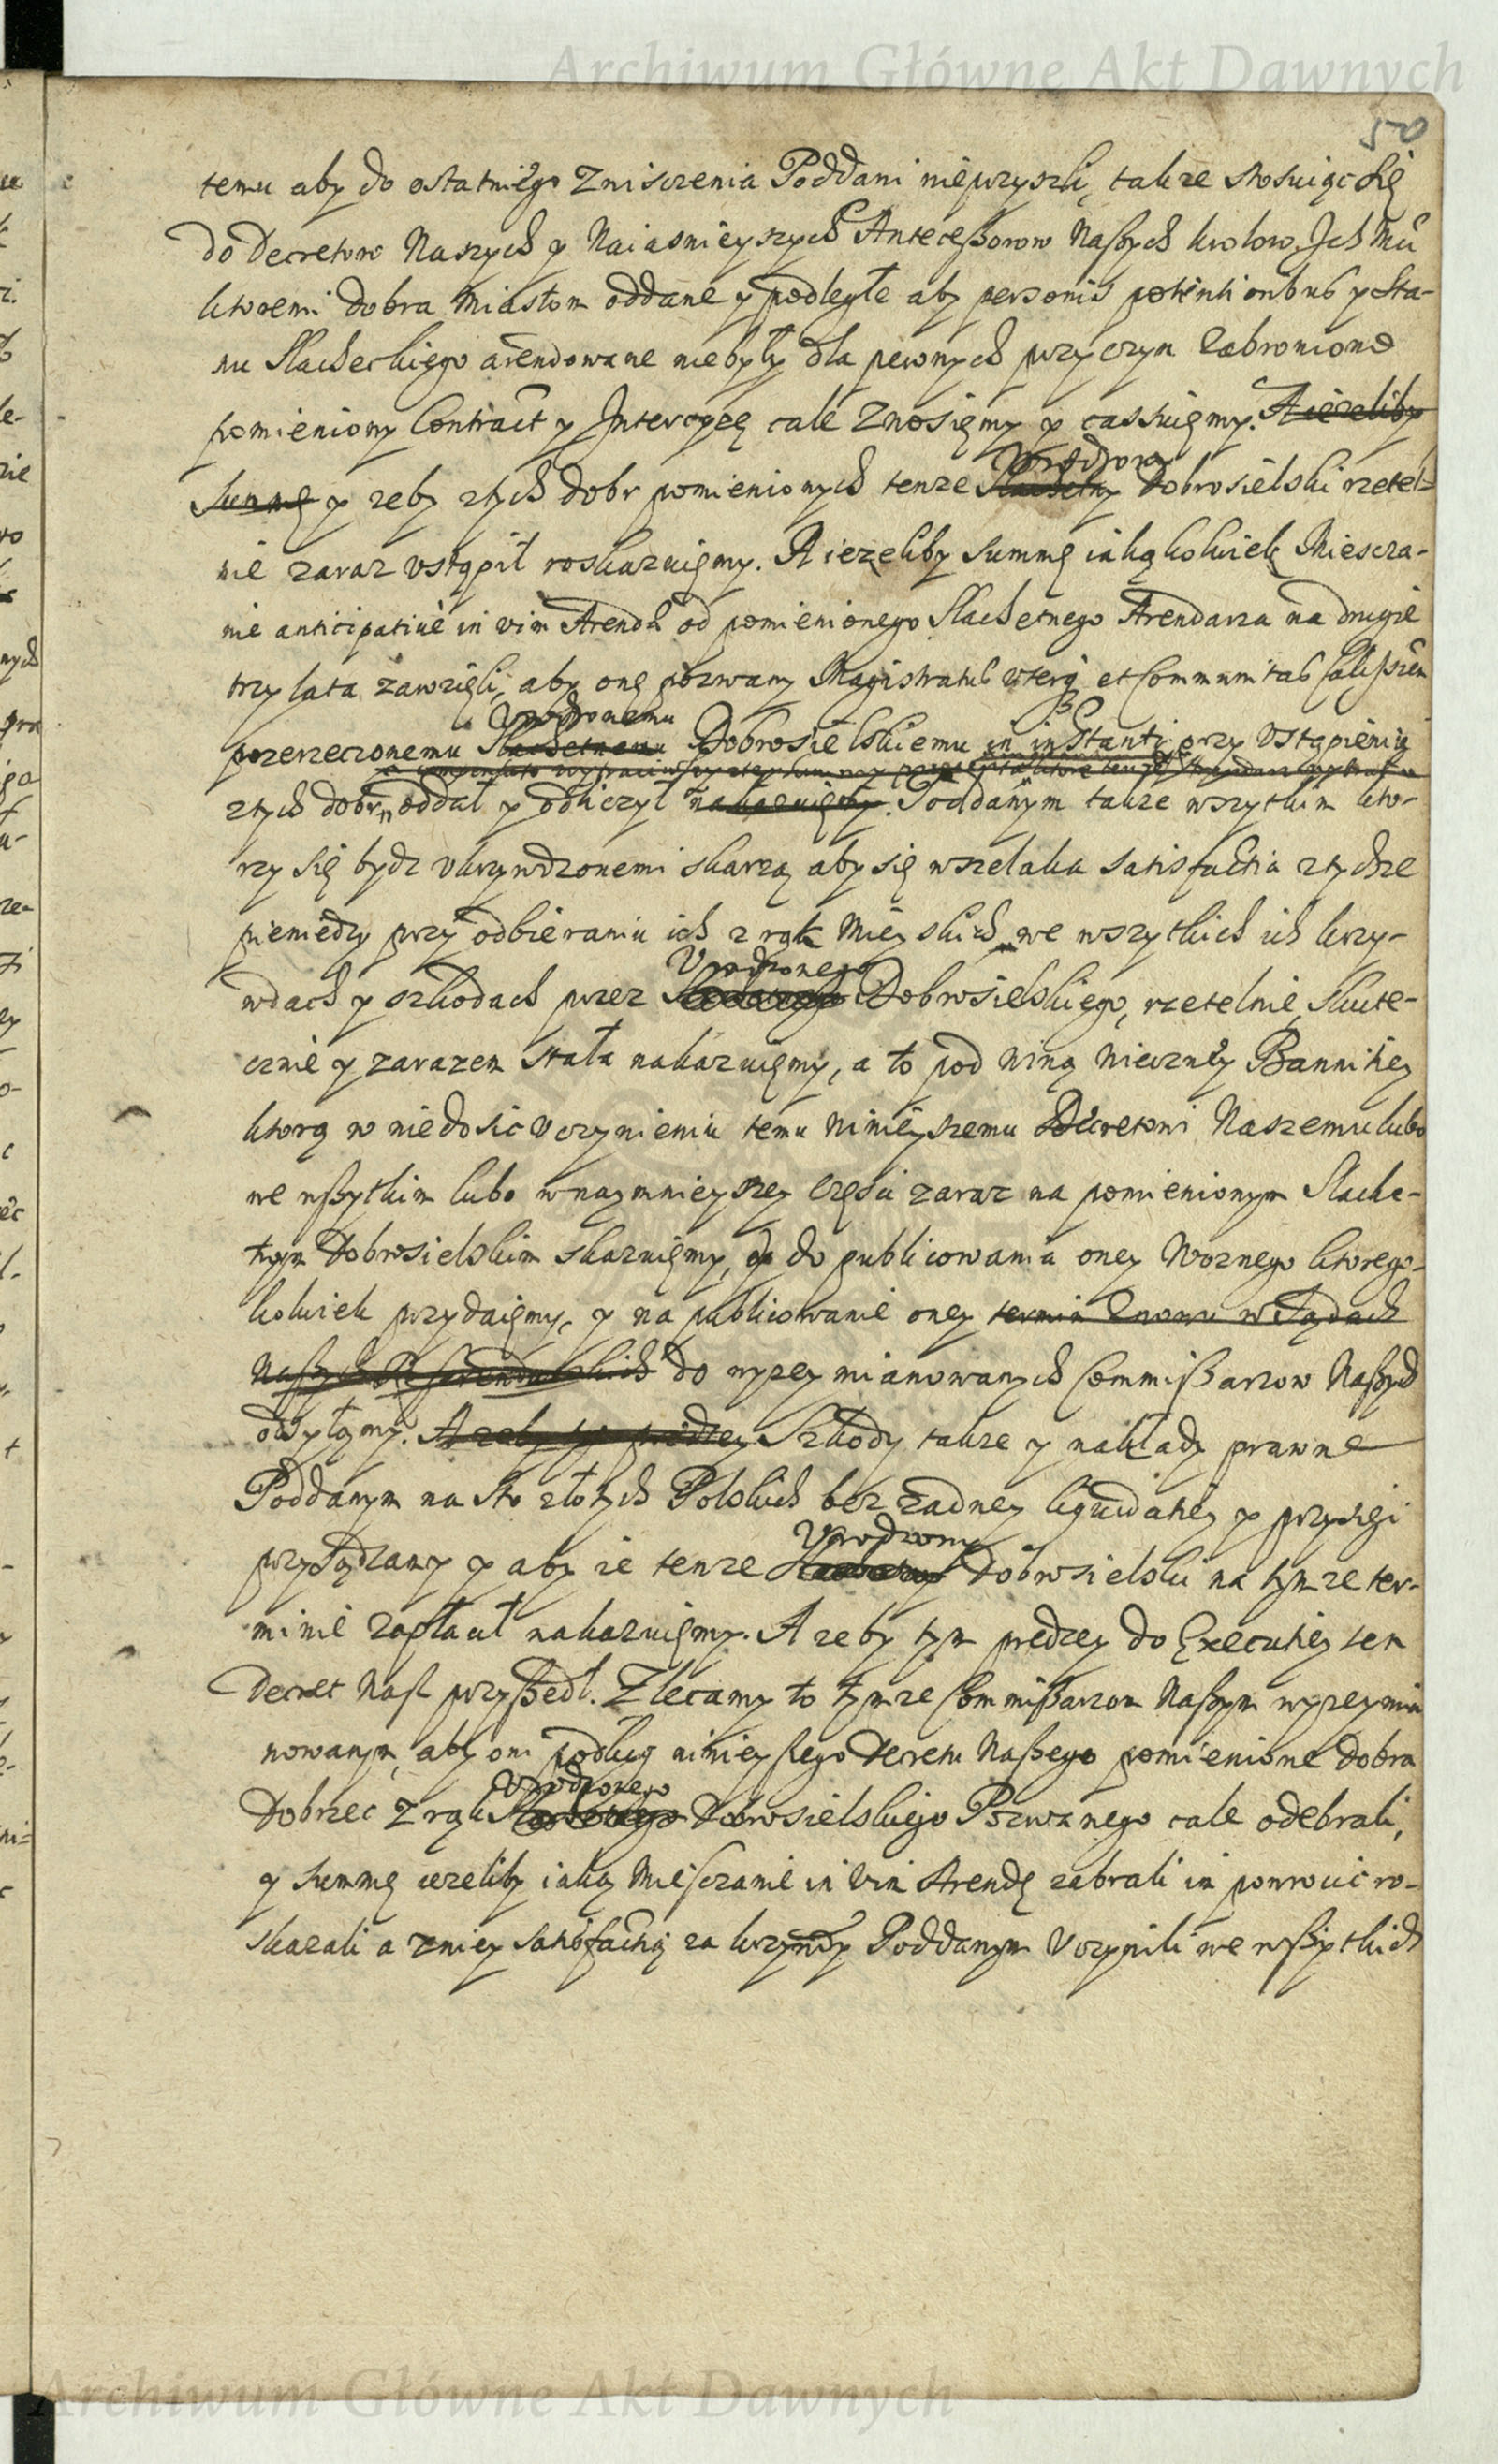 Archiwum Główne Akt Dawnych
50
temu aby do ostatniego Znisczenia Poddani nieprzyszli, takze stosuiąc się
do Decretow Naszych y Naiasnieyszych Antecessorow Naszych krolow Ich Mci
ktoremi Dobra Miastom oddane y podległe aby personis potentioribus y Sta-
nu Slacheckiego arendowane niebyły dla pewnych przyczyn Zabronione
pomieniony Contract y Intercyzę cale Znosięmy y cassuięmy. A iezeliby
Summę y zeby ztych dobr pomienionych tenze Slachetny Dobrosielski rzetel-
Vrodzony
nie zaraz vstąpił roskazuięmy. A iezeliby Summę iakąkolwiek Miescza-
nie anticipative in vim Arendy od pomienionego Slachetnego Arendarza na drugie
trzy lata zawzięli, aby onę pozwany Magistratus vterq et Communitas
Vrodzonemu
przerzeczonemu Slachetnemu Dobrosielskiemu in instanti przy Vstąpieniu
ztych dobr oddał y odliczył nakazuięmy. Poddanym takze wszytkim kto-
rzy się bydz vkrzywdzonemi skarzą aby się wszelaka satisfactia ztychze
pieniedzy przy odbieraniu ich z rąk Mieyskich we wszytkich ich krzy-
Vrodzonego
wdach y szkodach przez Slachetnego Dobrosielskiego, rzetelnie, Skute-
cznie y zarazem stała nakazuięmy, a to pod winą wieczney Bannitiey
ktorą w niedosic vczynieniu temu ninieyszemu Decretowi Naszemu lubo
we wszytkim lubo wnaymnieyszey części zaraz na pomienionym Slache-
tnym Dobrosielskim skazuięmy, y do publicowania oney Woznego ktorego-
kolwiek przydaięmy, y na publicowanie oney termin Znowu w Sądach
Naszych do wyzey mianowanych Commissarzow Naszych
odsyłąmy. A zeby tym prędzey Szkody takze y nakłady prawne
Poddanym na sto złotych Polskich bez zadney liquidatiey y przysięgi
Vrodzony
przysądzamy y aby ie tenze Slachetny Dobrosielski na tymze ter-
minie zapłacił nakazuięmy. A zeby tym prędzey do Executiey ten
Decret Nasz przyszedł. Zlecamy to tymze Commissarzom Naszym wyzey mia
nowanym, aby oni podług ninieyszego Decretu Naszego pomienione dobra
Vrodzonego
Dobrzec z rąk Slachetnego Dobrosielskiego Pozwanego cale odebrali,
y summę iezeliby iaką Miesczanie in vim Arendy zabrali im powrocic ro-
skazali a zniey satisfactią za krzywdy Poddanym Vczynili we wszytkich
Archiwum Główne Akt Dawnych